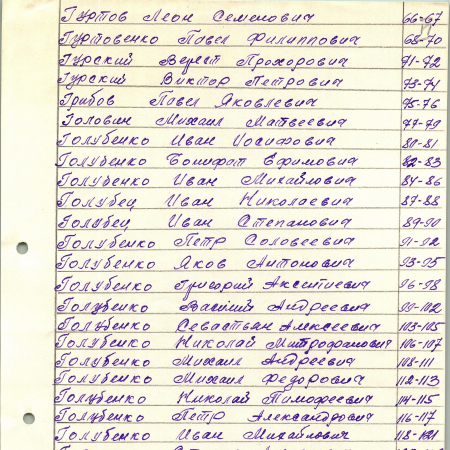 Гуртов Леон Семенович 66-67
Гуртовенко Павел Филиппович 68-70
Гурский Верест Прохорович 71-72
Гурский Виктор Петрович 73-74
Грибов Павел Яковлевич 75-76
Головин Михаил Матвеевич 77-79
Голубенко Иван Иосифович 80-81
Голубенко Бонифат Ефимович 82-83
Голубенко Иван Михайлович 84-86
Голубец Иван Николаевич 87-88
Голубец Иван Степанович 89-90
Голубенко Петр Соловеевич 91-92
Голубенко Яков Антонович 93-95
Голубенко Григорий Аксентиевич 96-98
Голубенко Василий Андреевич 99-102
Голубенко Севастьян Алексеевич 103-105
Голубенко Николай Митрофанович 106-107
Голубенко Михаил Андреевич 108-111
Голубенко Михаил Федорович 112-113
Голубенко Николай Тимофеевич 114-115
Голубенко Петр Александрович 116-117
Голубенко Иван Михайлович 118-121